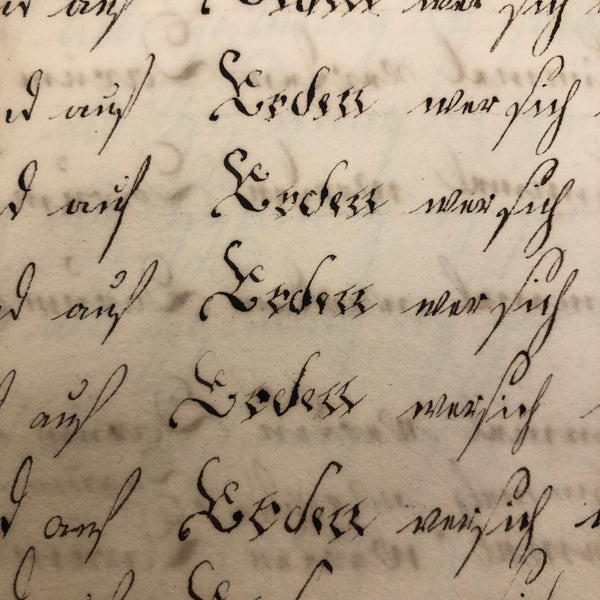 d auf Erden wer sich
d auf Erden wer sich
d auf Erden wer sich
d auf Erden wer sich
auf Erden wersich
d auf Erden wersich